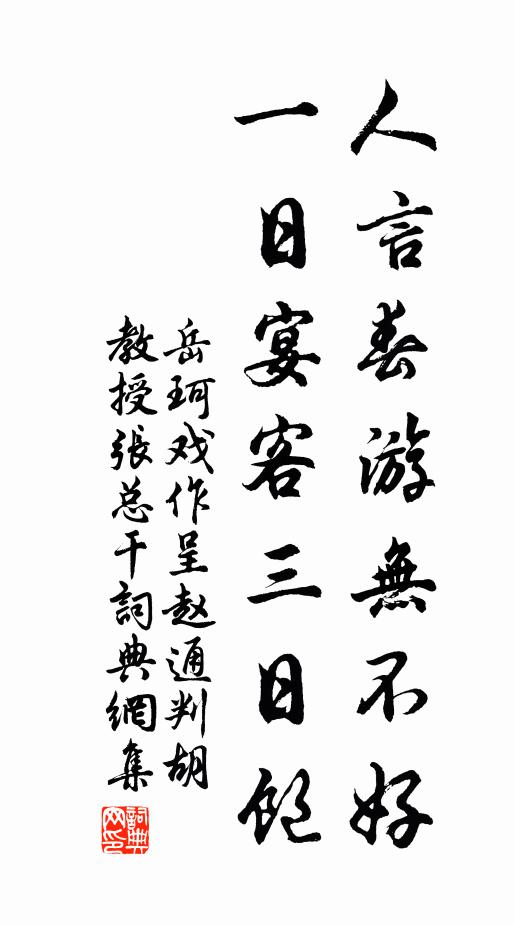 人言春游無不好
一日宴客三日飽
岳珂戏作呈赵通判胡
教授張总干詞典網集
詞典网印